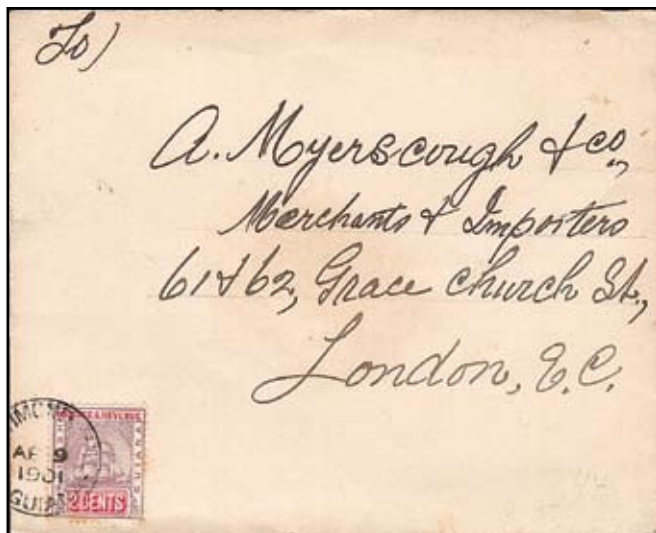 To)
A. Myerscough & Co.,
Merchants & Importers
61 & 62, Grace church St.,
London, E.C.
AP 9
1901
& REVENUE
GUIANA
2 CENTS